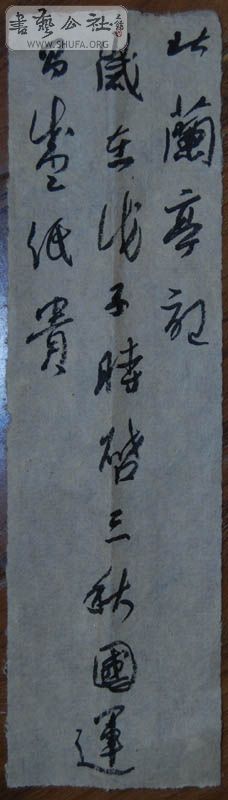 書藝公社
WWW.SHUFA.ORG
蘭亭
歲在戊子時啓三秋國運
昌盛紙貴